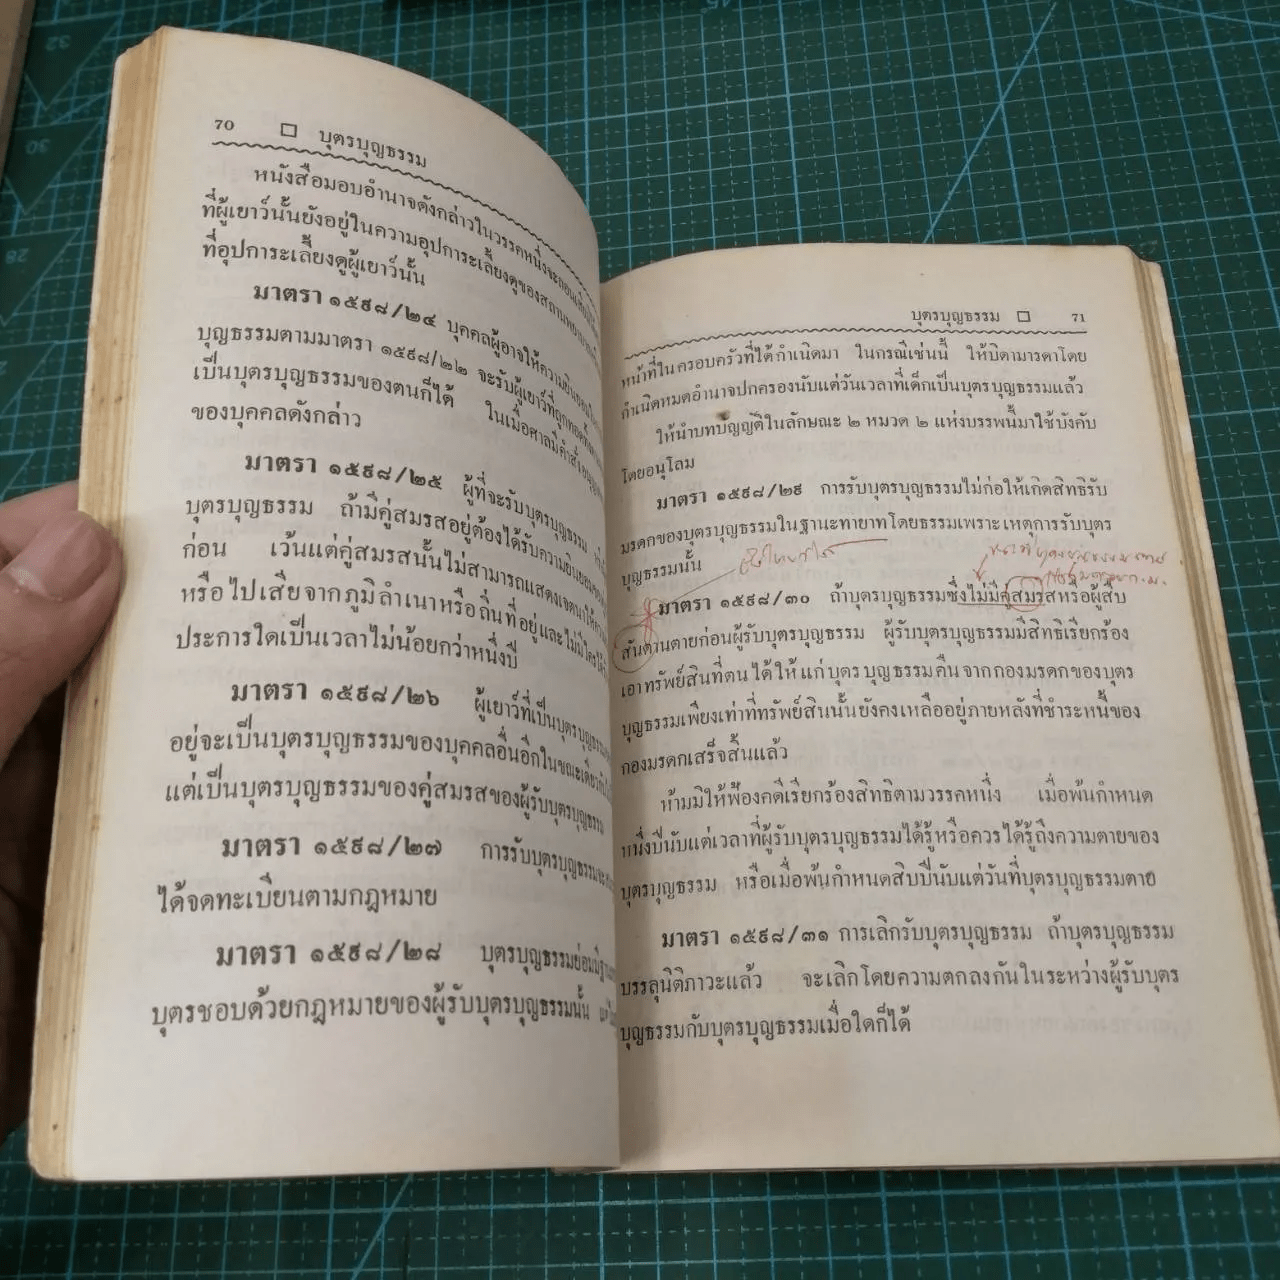 70 □ บุตรบุญธรรม
หนังสือมอบอำนาจดังกล่าวในวรรคหนึ่งจะถอนเสีย
ที่ผู้เยาว์นั้นยังอยู่ในความอุปการะเลี้ยงดูของสถานพยาบาล
ที่อุปการะเลี้ยงดูผู้เยาว์นั้น
มาตรา ๑๕๙๘/๒๔ บุคคลผู้อาจให้ความยินยอม
บุญธรรมตามมาตรา ๑๕๙๘/๒๒ จะรับผู้เยาว์ที่ถูกทอดทิ้ง
เป็นบุตรบุญธรรมของตนก็ได้ ในเมื่อศาลมีคำสั่ง
ของบุคคลดังกล่าว
มาตรา ๑๕๙๘/๒๕ ผู้ที่จะรับบุตรบุญธรรม
บุตรบุญธรรม ถ้ามีคู่สมรสอยู่ต้องได้รับความยินยอม
ก่อน เว้นแต่คู่สมรสนั้นไม่สามารถแสดงเจตนาให้
หรือไปเสียจากภูมิลำเนาหรือถิ่นที่อยู่และไม่มีใครได้
ประการใดเป็นเวลาไม่น้อยกว่าหนึ่งปี
มาตรา ๑๕๙๘/๒๖ ผู้เยาว์ที่เป็นบุตรบุญธรรม
อยู่จะเป็นบุตรบุญธรรมของบุคคลอื่นอีกในขณะเดียวกัน
แต่เป็นบุตรบุญธรรมของคู่สมรสของผู้รับบุตรบุญธรรม
มาตรา ๑๕๙๘/๒๗ การรับบุตรบุญธรรม
ได้จดทะเบียนตามกฎหมาย
มาตรา ๑๕๙๘/๒๘ บุตรบุญธรรมย่อมมี
บุตรชอบด้วยกฎหมายของผู้รับบุตรบุญธรรมนั้น
บุตรบุญธรรม □ 71
หน้าที่ในครอบครัวที่ได้กำเนิดมา ในกรณีเช่นนี้ ให้บิดามารดาโดย
กำเนิดหมดอำนาจปกครองนับแต่วันเวลาที่เด็กเป็นบุตรบุญธรรมแล้ว
ให้นำบทบัญญัติในลักษณะ ๒ หมวด ๒ แห่งบรรพนี้มาใช้บังคับ
โดยอนุโลม
มาตรา ๑๕๙๘/๒๙ การรับบุตรบุญธรรมไม่ก่อให้เกิดสิทธิรับ
มรดกของบุตรบุญธรรมในฐานะทายาทโดยธรรมเพราะเหตุการรับบุตร
บุญธรรมนั้น
มาตรา ๑๕๙๘/๓๐ ถ้าบุตรบุญธรรมซึ่งไม่มีคู่สมรสหรือผู้สืบ
สันดานตายก่อนผู้รับบุตรบุญธรรม ผู้รับบุตรบุญธรรมมีสิทธิเรียกร้อง
เอาทรัพย์สินที่ตนได้ให้แก่บุตรบุญธรรมคืนจากกองมรดกของบุตร
บุญธรรมเพียงเท่าที่ทรัพย์สินนั้นยังคงเหลืออยู่ภายหลังที่ชำระหนี้ของ
กองมรดกเสร็จสิ้นแล้ว
ห้ามมิให้ฟ้องคดีเรียกร้องสิทธิตามวรรคหนึ่ง เมื่อพ้นกำหนด
หนึ่งปีนับแต่เวลาที่ผู้รับบุตรบุญธรรมได้รู้หรือควรได้รู้ถึงความตายของ
บุตรบุญธรรม หรือเมื่อพ้นกำหนดสิบปีนับแต่วันที่บุตรบุญธรรมตาย
มาตรา ๑๕๙๘/๓๑ การเลิกรับบุตรบุญธรรม ถ้าบุตรบุญธรรม
บรรลุนิติภาวะแล้ว จะเลิกโดยความตกลงกันในระหว่างผู้รับบุตร
บุญธรรมกับบุตรบุญธรรมเมื่อใดก็ได้